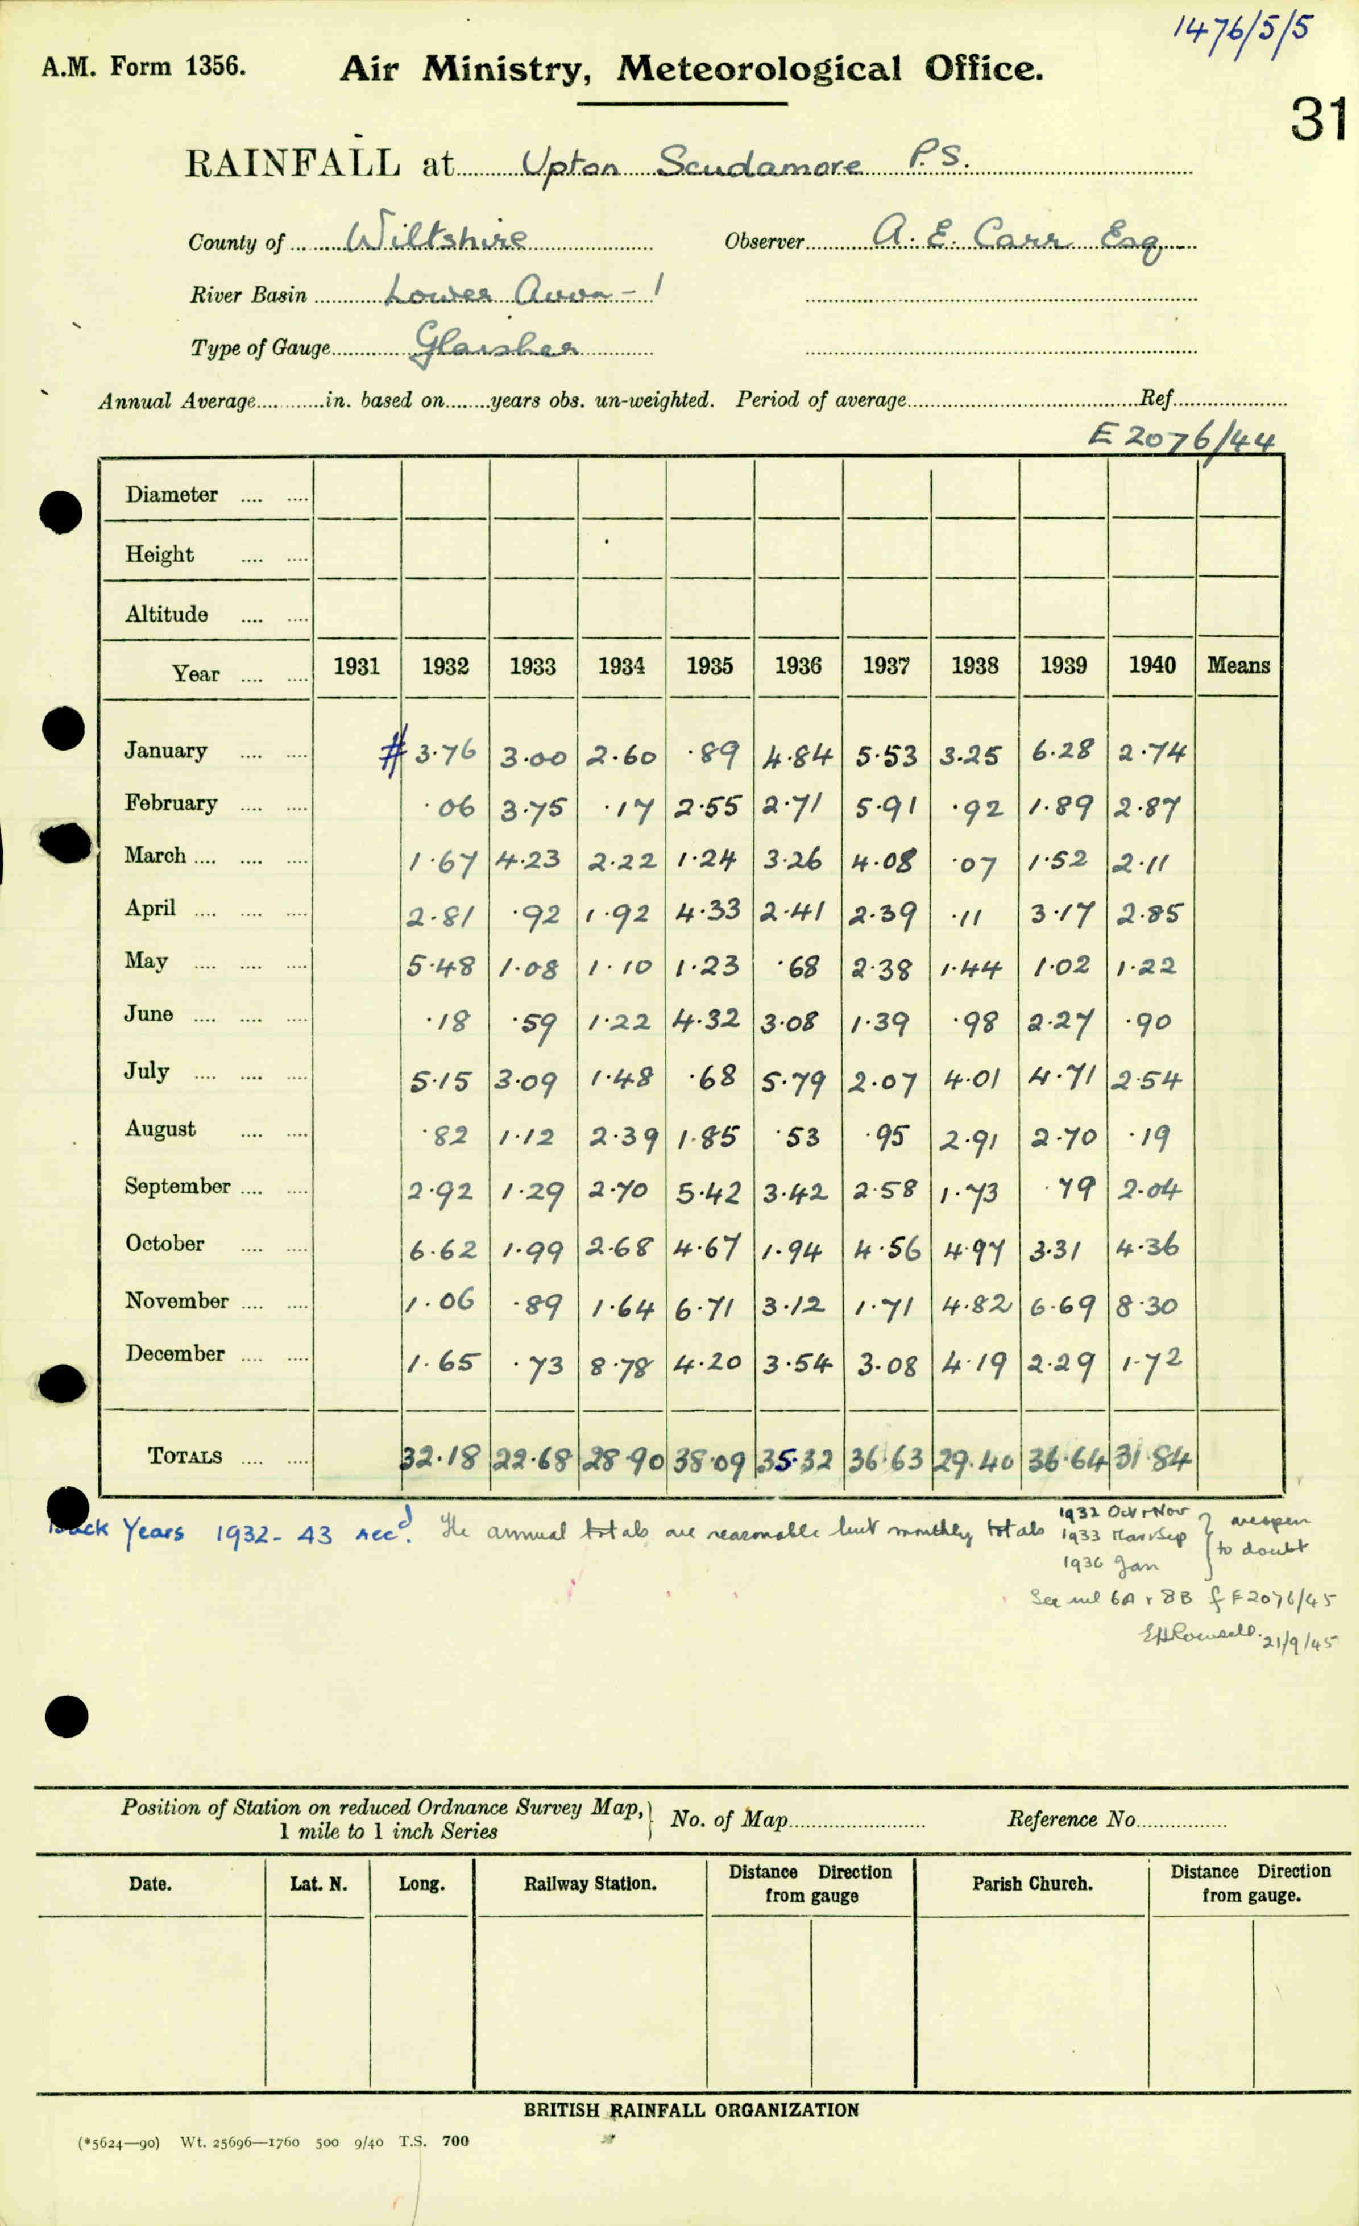 1476/5/5
A.M. Form 1356. Air Ministry, Meteorological Office.
31
RAINFALL at Upton Scudamore P.S.
County of Wiltshire Observer A. E. Carr Esq
River Basin Lower Avon - 1
Type of Gauge Glaisher
Annual Average............in. based on........years obs. un-weighted. Period of average.................Ref.............
E 2076/44
Diameter .... ....
Height .... ....
Altitude .... ....
Year .... .... 1931 1932 1933 1934 1935 1936 1937 1938 1939 1940 Means
January .... .... # 3.76 3.00 2.60 .89 4.84 5.53 3.25 6.28 2.74
February .... .... .06 3.75 .17 2.55 2.71 5.91 .92 1.89 2.87
March .... .... .... 1.67 4.23 2.22 1.24 3.26 4.08 .07 1.52 2.11
April .... .... .... 2.81 .92 1.92 4.33 2.41 2.39 .11 3.17 2.85
May .... .... .... 5.48 1.08 1.10 1.23 .68 2.38 1.44 1.02 1.22
June .... .... .... .18 .59 1.22 4.32 3.08 1.39 .98 2.27 .90
July .... .... .... 5.15 3.09 1.48 .68 5.79 2.07 4.01 4.71 2.54
August .... .... .82 1.12 2.39 1.85 .53 .95 2.91 2.70 .19
September .... .... 2.92 1.29 2.70 5.42 3.42 2.58 1.73 .79 2.04
October .... .... 6.62 1.99 2.68 4.67 1.94 4.56 4.97 3.31 4.36
November .... .... 1.06 .89 1.64 6.71 3.12 1.71 4.82 6.69 8.30
December .... .... 1.65 .73 8.78 4.20 3.54 3.08 4.19 2.29 1.72
TOTALS .... .... 32.18 22.68 28.90 38.09 35.32 36.63 29.40 36.64 31.84
Back Years 1932-43 Accd. The annual totals are reasonable but monthly totals 1932 Oct + Nov
1933 Mar + Sep } are open
1936 Jan to doubt
See ml 6A + 8B of F2076/45
21/9/45
Position of Station on reduced Ordnance Survey Map, } No. of Map............ Reference No............
1 mile to 1 inch Series
Date. Lat. N. Long. Railway Station. Distance Direction from gauge Parish Church. Distance Direction from gauge.
BRITISH RAINFALL ORGANIZATION
(*5624—90) Wt. 25696—1760 500 9/40 T.S. 700